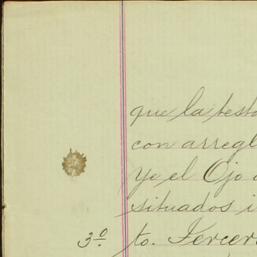 que la testa
con arregl
Ye el Ojo
situados i
3º to. Tercer